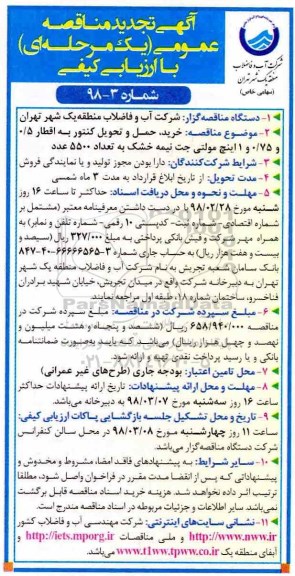 آگهی تجدید مناقصه
عمومی (یک مرحله‌ای)
با ارزیابی کیفی
شماره ۳-۹۸
شرکت آب و فاضلاب
منطقه یک شهر تهران
(سهامی خاص)
۱- دستگاه مناقصه‌گزار: شرکت آب و فاضلاب منطقه یک شهر تهران
۲- موضوع مناقصه: خرید، حمل و تحویل کنتور به اقطار ۰/۵
و ۰/۷۵ و ۱ اینچ مولتی جت نیمه خشک به تعداد ۵۵۰۰ عدد
۳- شرایط شرکت‌کنندگان: دارا بودن مجوز تولید و یا نمایندگی فروش
۴- مدت تحویل: از تاریخ ابلاغ قرارداد به مدت ۳ ماه شمسی
۵- مهلت و نحوه و محل دریافت اسناد: حداکثر تا ساعت ۱۶ روز
شنبه مورخ ۹۸/۰۲/۲۸ با در دست داشتن معرفینامه معتبر (مشتمل بر
شماره اقتصادی، شماره ثبت- کدپستی ۱۰ رقمی- شماره تلفن و نمابر) به
همراه مهر شرکت و فیش بانکی پرداختی به مبلغ ۳۲۷/۰۰۰ ریال (سیصد و
بیست و هفت هزار ریال) به حساب جاری شماره ۳-۶۶۶۶۶۵۶۳-۴۰-۸۴۷
بانک سامان شعبه تجریش به نام شرکت آب و فاضلاب منطقه یک شهر
تهران به دبیرخانه شرکت واقع در میدان تجریش، خیابان شهید برادران
فناخسرو، ساختمان شماره ۱، طبقه اول مراجعه نمایند
۶- مبلغ سپرده شرکت در مناقصه: مبلغ سپرده شرکت در
مناقصه ۶۵۸/۹۴۰/۰۰۰ ریال (ششصد و پنجاه و هشت میلیون و
نهصد و چهل هزار ریال) می‌باشد که باید به‌صورت ضمانتنامه
بانکی و یا رسید پرداخت نقدی تهیه و ارائه شود.
۷- محل تامین اعتبار: بودجه جاری (طرح‌های غیر عمرانی)
۸- مهلت و محل ارائه پیشنهادات: تاریخ ارائه پیشنهادات حداکثر
ساعت ۱۶ روز سه‌شنبه مورخ ۹۸/۰۳/۰۷ به دبیرخانه می‌باشد.
۹- تاریخ و محل تشکیل جلسه بازگشایی پاکات ارزیابی کیفی:
ساعت ۱۱ روز چهارشنبه مورخ ۹۸/۰۳/۰۸ در محل سالن کنفرانس
شرکت دستگاه مناقصه‌گزار می‌باشد.
۱۰- سایر شرایط: به پیشنهادهای فاقد امضاء، مشروط و مخدوش و
پیشنهاداتی که پس از انقضا مدت مقرر در فراخوان واصل شود، مطلقا
ترتیب اثر داده نخواهد شد. هزینه خرید اسناد مناقصه قابل برگشت
نمی‌باشد. سایر اطلاعات و جزئیات مربوطه در اسناد مناقصه مندرج است.
۱۱- نشانی سایت‌های اینترنتی: شرکت مهندسی آب و فاضلاب کشور
http://www.nww.ir و ملی مناقصات http://iets.mporg.ir و
آبفای منطقه یک www.t1ww.tpww.co.ir می‌باشد.